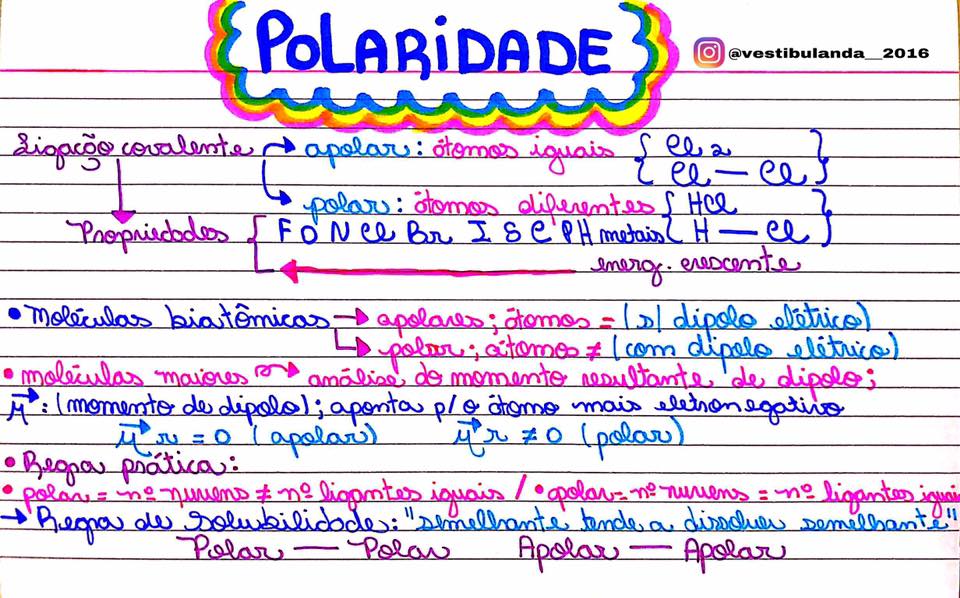 POLARIDADE
@vestibulanda__2016
Ligação covalente → apolar: átomos iguais { Cl2
Cl — Cl }
polar: átomos diferentes { HCl
Propriedades { F O N Cl Br I S C P H metais { H — Cl }
energ. crescente
• Moléculas biatômicas → apolares; átomos = (s/ dipolo elétrico)
→ polar; átomos ≠ (com dipolo elétrico)
• moléculas maiores → análise do momento resultante de dipolo;
μ⃗: (momento de dipolo); aponta p/ o átomo mais eletronegativo
μ⃗r = 0 (apolar) μ⃗r ≠ 0 (polar)
• Regra prática:
• polar = nº nuvens ≠ nº ligantes iguais / • apolar = nº nuvens = nº ligantes iguai
→ Regra de solubilidade: "semelhante tende a dissolver semelhante"
Polar — Polar Apolar — Apolar